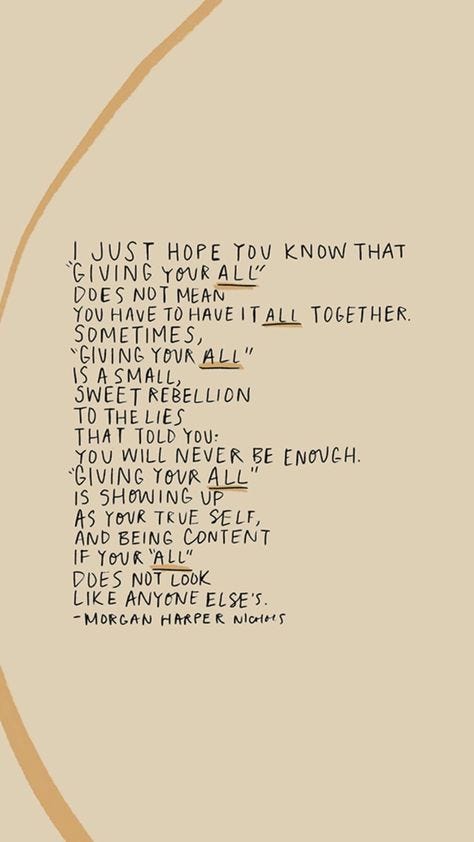 I JUST HOPE YOU KNOW THAT
"GIVING YOUR ALL"
DOES NOT MEAN
YOU HAVE TO HAVE IT ALL TOGETHER.
SOMETIMES,
"GIVING YOUR ALL"
IS A SMALL,
SWEET REBELLION
TO THE LIES
THAT TOLD YOU:
YOU WILL NEVER BE ENOUGH.
"GIVING YOUR ALL"
IS SHOWING UP
AS YOUR TRUE SELF,
AND BEING CONTENT
IF YOUR "ALL"
DOES NOT LOOK
LIKE ANYONE ELSE'S.
-MORGAN HARPER NICHOLS